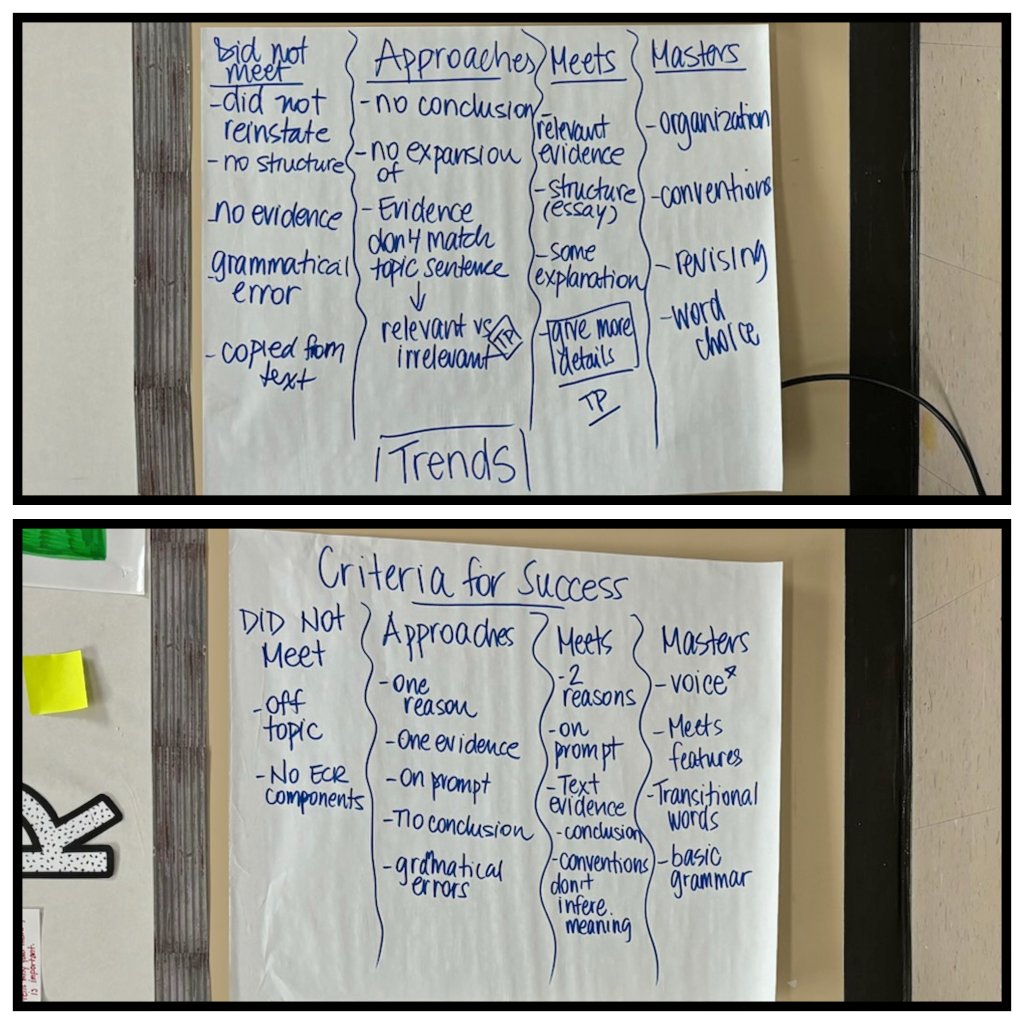 Did not
meet
-did not
reinstate
-no structure
-no evidence
-grammatical
error
-copied from
text
Approaches
-no conclusion
-no expansion
of
-Evidence
don't match
topic sentence
↓
relevant vs
irrelevant
TP
Meets
-relevant
evidence
-structure
(essay)
-some
explanation
-give more
details
TP
Masters
-organization
-conventions
-revising
-word
choice
Trends
Criteria for Success
DID NOT
Meet
-off
topic
-No ECR
components
Approaches
-one
reason
-One evidence
-On prompt
-no conclusion
-gramatical
errors
Meets
-2
reasons
-on
prompt
-Text
evidence
-conclusion
-conventions
don't
infere.
meaning
Masters
-voice*
-Meets
features
-Transitional
words
-basic
grammar
R
is important.